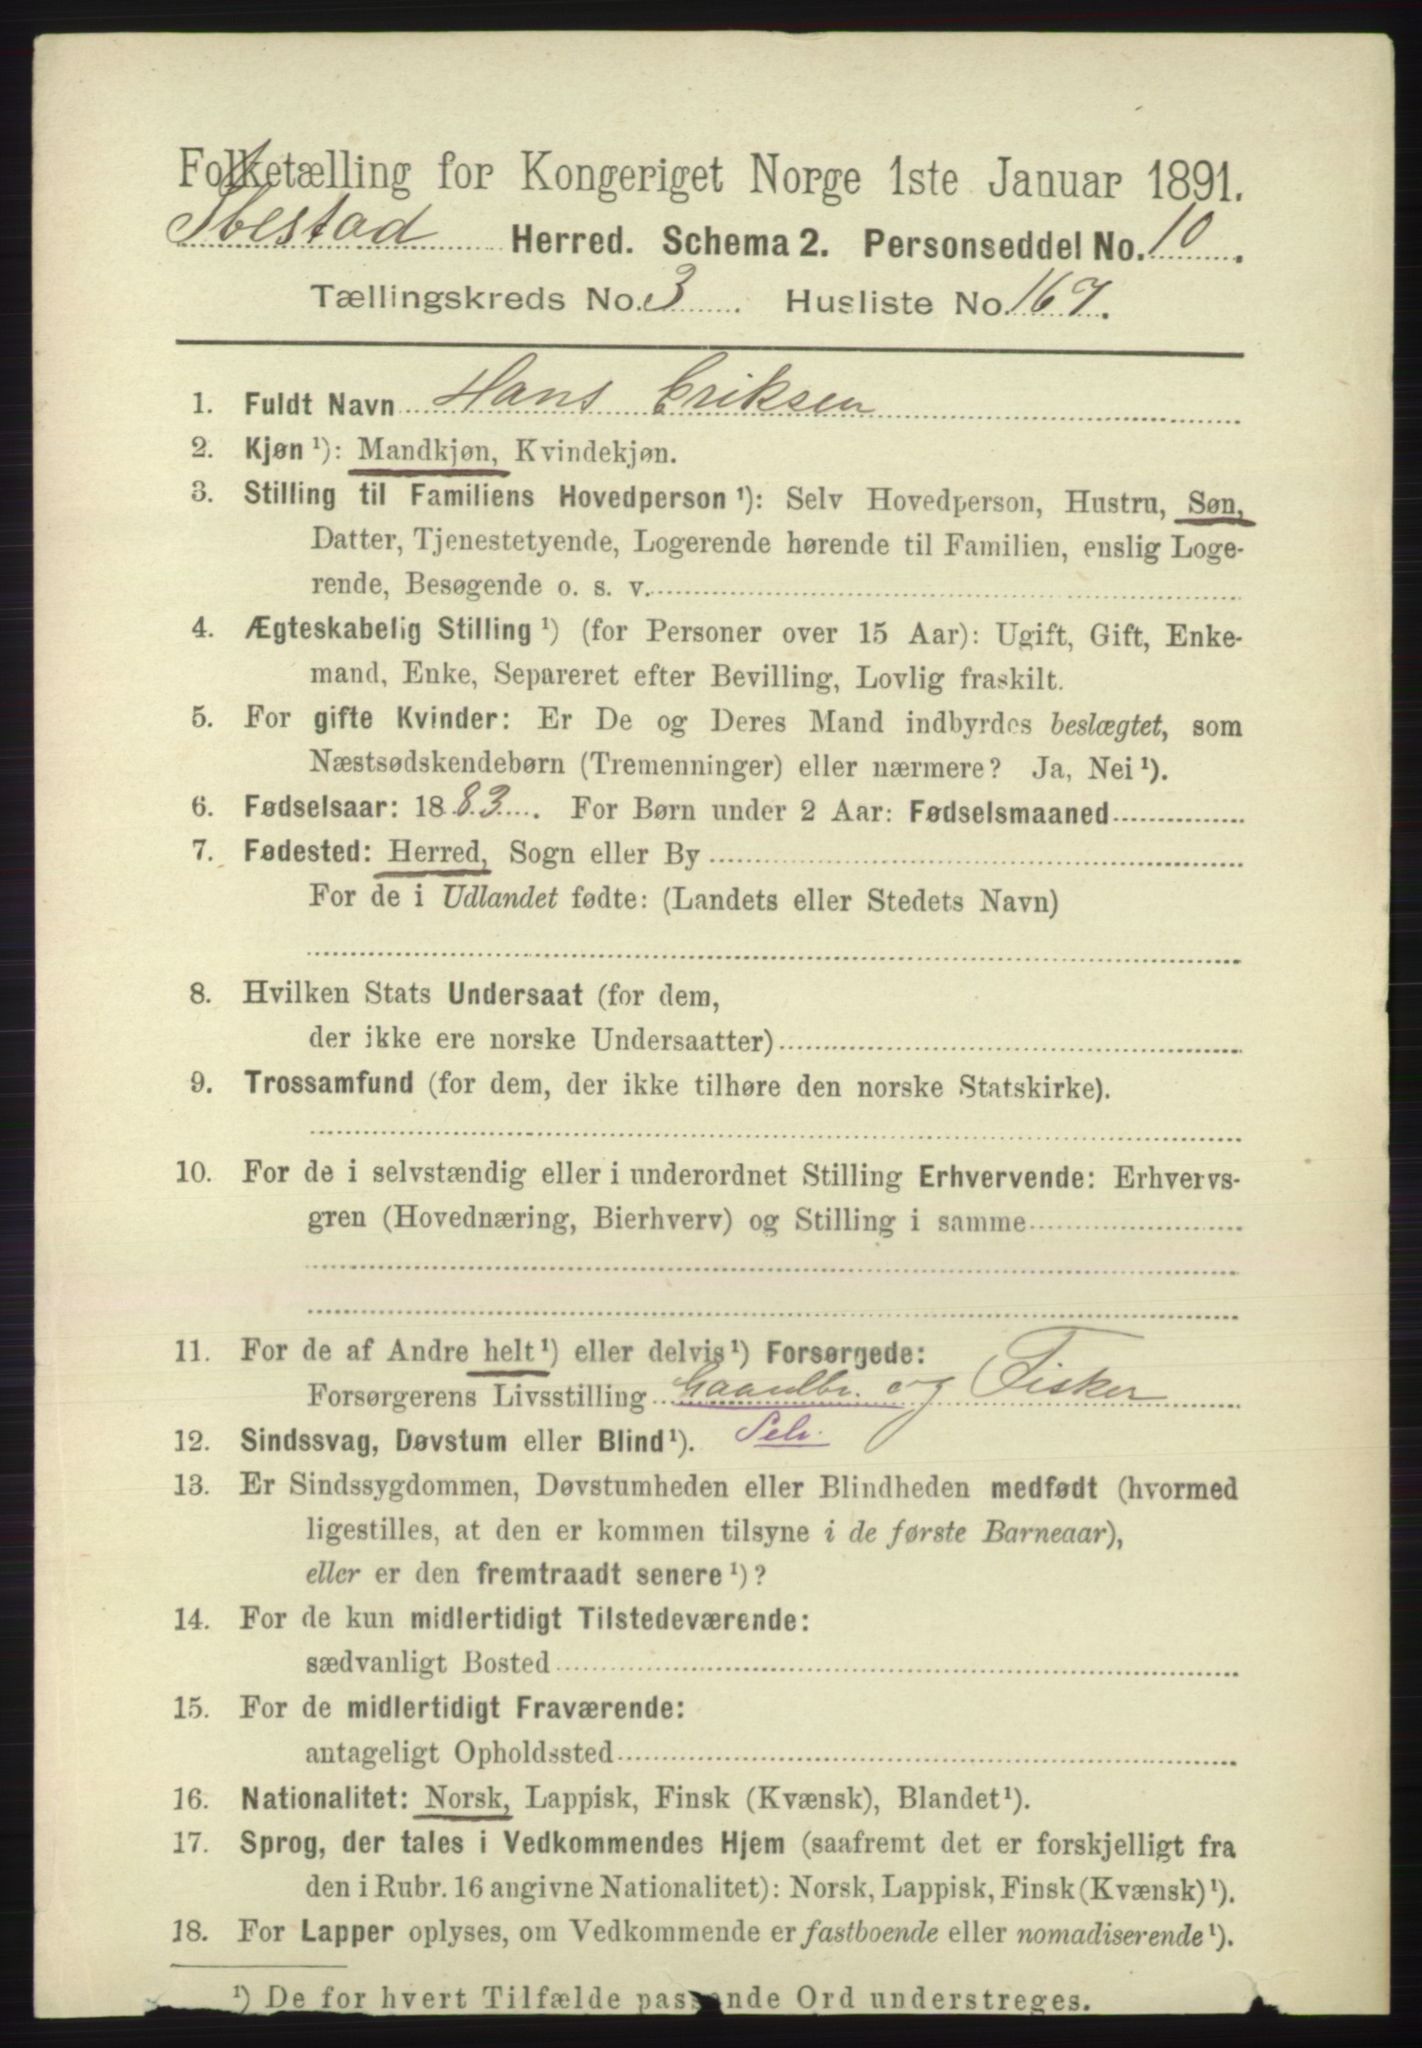 Folketælling for Kongeriget Norge 1ste Januar 1891.
Ibestad Herred. Schema 2. Personseddel No. 10.
Tællingskreds No. 3. Husliste No. 167.
1. Fuldt Navn Hans Eriksen
2. Kjøn ¹): Mandkjøn, Kvindekjøn.
3. Stilling til Familiens Hovedperson ¹): Selv Hovedperson, Hustru, Søn,
Datter, Tjenestetyende, Logerende hørende til Familien, enslig Loge-
rende, Besøgende o. s. v.
4. Ægteskabelig Stilling ¹) (for Personer over 15 Aar): Ugift, Gift, Enke-
mand, Enke, Separeret efter Bevilling, Lovlig fraskilt.
5. For gifte Kvinder: Er De og Deres Mand indbyrdes beslægtet, som
Næstsødskendebørn (Tremenninger) eller nærmere? Ja, Nei ¹).
6. Fødselsaar: 1883. For Børn under 2 Aar: Fødselsmaaned
7. Fødested: Herred, Sogn eller By
For de i Udlandet fødte: (Landets eller Stedets Navn)
8. Hvilken Stats Undersaat (for dem,
der ikke ere norske Undersaatter)
9. Trossamfund (for dem, der ikke tilhøre den norske Statskirke).
10. For de i selvstændig eller i underordnet Stilling Erhvervende: Erhvervs-
gren (Hovednæring, Bierhverv) og Stilling i samme
11. For de af Andre helt ¹) eller delvis ¹) Forsørgede:
Forsørgerens Livsstilling Gaardbr. og Fisker
Selv.
12. Sindssvag, Døvstum eller Blind ¹).
13. Er Sindssygdommen, Døvstumheden eller Blindheden medfødt (hvormed
ligestilles, at den er kommen tilsyne i de første Barneaar),
eller er den fremtraadt senere ¹)?
14. For de kun midlertidigt Tilstedeværende:
sædvanligt Bosted
15. For de midlertidigt Fraværende:
antageligt Opholdssted
16. Nationalitet: Norsk, Lappisk, Finsk (Kvænsk), Blandet ¹).
17. Sprog, der tales i Vedkommendes Hjem (saafremt det er forskjelligt fra
den i Rubr. 16 angivne Nationalitet): Norsk, Lappisk, Finsk (Kvænsk) ¹).
18. For Lapper oplyses, om Vedkommende er fastboende eller nomadiserende ¹).
¹) De for hvert Tilfælde passende Ord understreges.